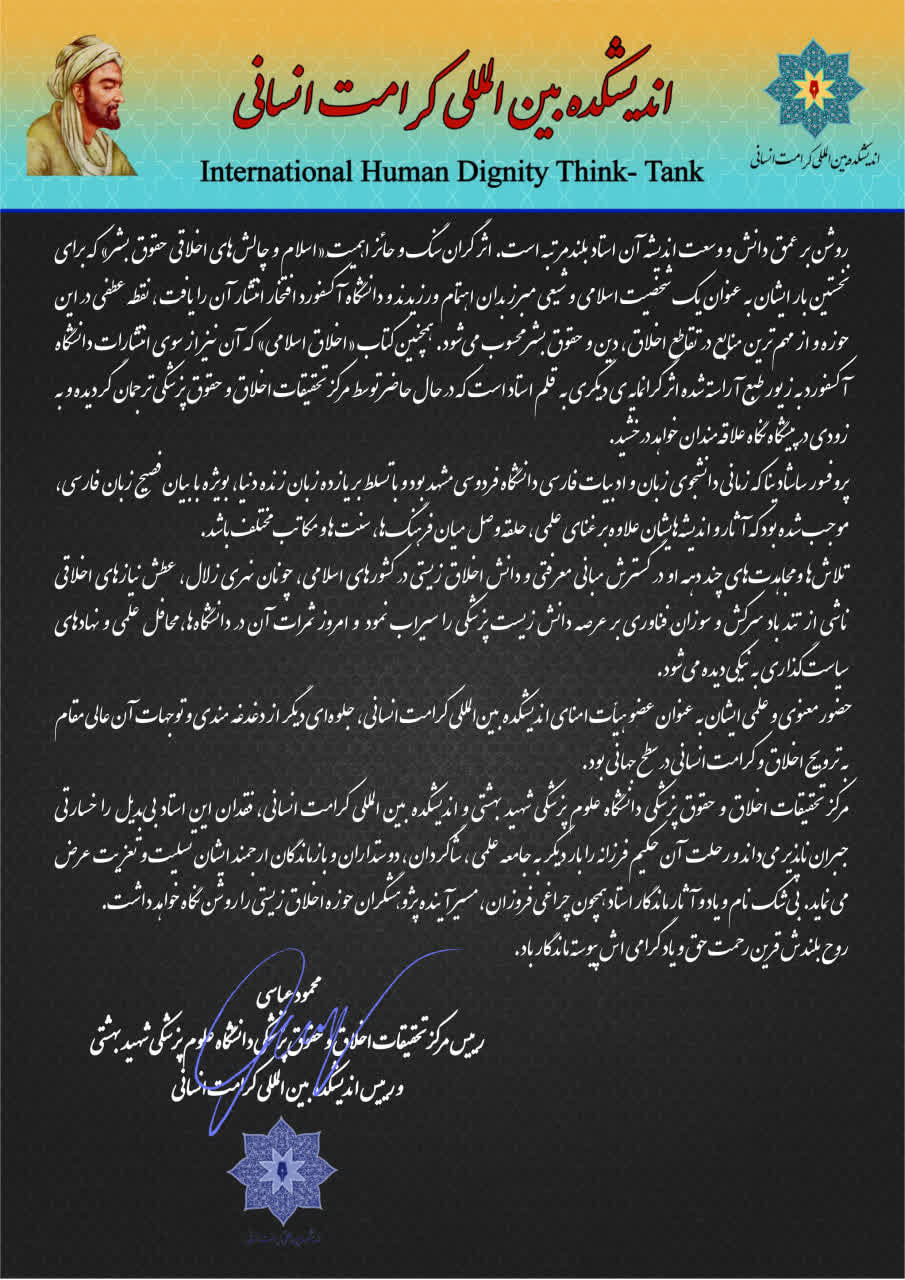 اندیشکده بین المللی کرامت انسانی
International Human Dignity Think- Tank
اندیشکده بین المللی کرامت انسانی
روشن بر عمق دانش و وسعت اندیشه آن استاد بلند مرتبه است. اثر گران سنگ و حائز اهمیت «اسلام و چالش های اخلاقی حقوق بشر» که برای
نخستین بار ایشان به عنوان یک شخصیت اسلامی و شیعی مبرز بدان اهتمام ورزیدند و دانشگاه آکسفورد افتخار انتشار آن را یافت، نقطه عطفی در این
حوزه و از مهم ترین منابع در تقاطع اخلاق، دین و حقوق بشر محسوب می شود. همچنین کتاب «اخلاق اسلامی» که آن نیز از سوی انتشارات دانشگاه
آکسفورد به زیور طبع آراسته شده اثر گرانمایه ی دیگری به قلم استاد است که در حال حاضر توسط مرکز تحقیقات اخلاق و حقوق پزشکی ترجمان گردیده و به
زودی در پیشگاه نگاه علاقه مندان خواهد درخشید.
پروفسور ساشادینا که زمانی دانشجوی زبان و ادبیات فارسی دانشگاه فردوسی مشهد بود و با تسلط بر یازده زبان زنده دنیا، بویژه با بیان فصیح زبان فارسی،
موجب شده بود که آثار و اندیشه هایشان علاوه بر غنای علمی، حلقه وصل میان فرهنگ ها، سنت ها و مکاتب مختلف باشد.
تلاش ها و مجاهدت های چند دهه او در گسترش مبانی معرفتی و دانش اخلاق زیستی در کشورهای اسلامی، چونان نهری زلال، عطش نیازهای اخلاقی
ناشی از تند باد سرکش و سوزان فناوری بر عرصه دانش زیست پزشکی را سیراب نمود و امروز ثمرات آن در دانشگاه ها، محافل علمی و نهادهای
سیاست گذاری به نیکی دیده می شود.
حضور معنوی و علمی ایشان به عنوان عضو هیأت امنای اندیشکده بین المللی کرامت انسانی، جلوه ای دیگر از دغدغه مندی و توجهات آن عالی مقام
به ترویج اخلاق و کرامت انسانی در سطح جهانی بود.
مرکز تحقیقات اخلاق و حقوق پزشکی دانشگاه علوم پزشکی شهید بهشتی و اندیشکده بین المللی کرامت انسانی، فقدان این استاد بی بدیل را خسارتی
جبران ناپذیر می داند و رحلت آن حکیم فرزانه را بار دیگر به جامعه علمی، شاگردان، دوستداران و بازماندگان ارجمند ایشان تسلیت و تعزیت عرض
می نماید. بی شک نام و یاد و آثار ماندگار استاد همچون چراغی فروزان، مسیر آینده پژوهشگران حوزه اخلاق زیستی را روشن نگاه خواهد داشت.
روح بلندش قرین رحمت حق و یاد گرامی اش پیوسته ماندگار باد.
محمود عباسی
رییس مرکز تحقیقات اخلاق و حقوق پزشکی دانشگاه علوم پزشکی شهید بهشتی
و رییس اندیشکده بین المللی کرامت انسانی
اندیشکده بین المللی کرامت انسانی